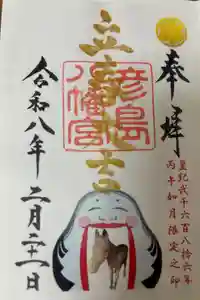 奉拝
皇紀弐千六百八拾六年
丙午如月限定之印
立春大吉
彦島八幡宮
令和八年二月二十二日